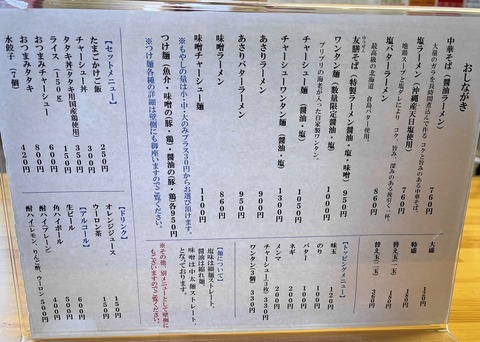 おしながき
中華そば（醤油ラーメン） 760円
大量のガラを長時間煮込んで作る、コクと旨みのある中華そば。
塩ラーメン（沖縄産天日塩使用） 760円
地鶏スープと塩ダレにより、コク、旨み、深みのある後引く一杯。
塩バターラーメン 860円
最高級の北海道 倉島バター使用。
友膳そば（特製ラーメン醤油・塩・味噌） 950円
ワンタン麺（数量限定醤油・塩） 1000円
プリプリの海老が入った自家製ワンタン。
チャーシュー麺（醤油・塩） 1050円
チャーシューワンタン麺（醤油・塩） 1300円
あさりラーメン 900円
あさりバターラーメン 950円
味噌ラーメン 860円
味噌チャーシュー麺 1100円
※もやしの量は小・中・大のみプラス30円からお選び頂けます。
つけ麺（魚介・味噌の（豚・鶏）・醤油の（豚・鶏）各950円
※つけ麺各種の詳細は壁側にも御座いますのでご覧ください。
【セットメニュー】
たまごかけご飯 250円
チャーシュー丼 350円
タタキ丼（タタキ用国産鶏使用） 350円
ライス（150g） 150円
おつまみチャーシュー 600円
おつまみタタキ 800円
水餃子（7個） 420円
大盛 120円
特盛 180円
替え玉（一玉） 180円
替え玉（二玉） 360円
【トッピングメニュー】
味玉 120円
のり 100円
バター 100円
ネギ 200円
メンマ 200円
チャーシュー（3枚） 330円
ワンタン（3個） 330円
【麺について】
塩味は細麺ストレート、
醤油は縮れ麺、
味噌は中太麺ストレート、
となっております。
※その他、別メニューとして壁側に
もございますのでご覧ください。
【ドリンク】
オレンジジュース 150円
ウーロン茶 150円
【アルコール】
生ビール 600円
角ハイボール 400円
酎ハイプレーン 400円
酎ハイ（レモン、りんご酢、ウーロン） 500円